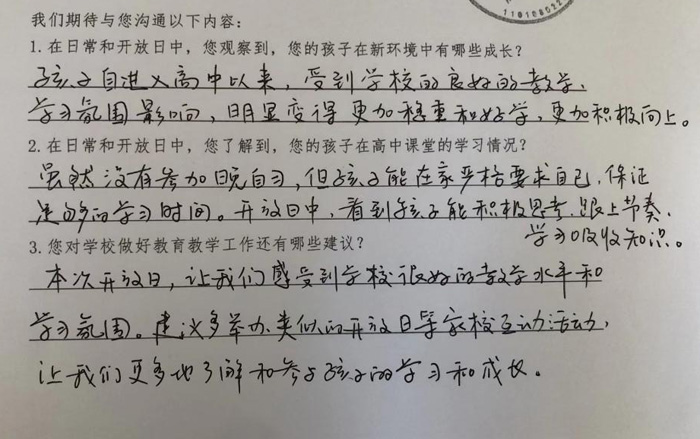 我们期待与您沟通以下内容：
110108022
1. 在日常和开放日中，您观察到，您的孩子在新环境中有哪些成长？
孩子自进入高中以来，受到学校的良好的教学、
学习氛围影响，明显变得更加稳重和好学，更加积极向上。
2. 在日常和开放日中，您了解到，您的孩子在高中课堂的学习情况？
虽然没有参加晚自习，但孩子能在家严格要求自己，保证
足够的学习时间。开放日中，看到孩子能积极思考，跟上节奏，
学习吸收知识。
3. 您对学校做好教育教学工作还有哪些建议？
本次开放日，让我们感受到学校很好的教学水平和
学习氛围。建议多举办类似的开放日等家校互动活动，
让我们更多地了解和参与孩子的学习和成长。